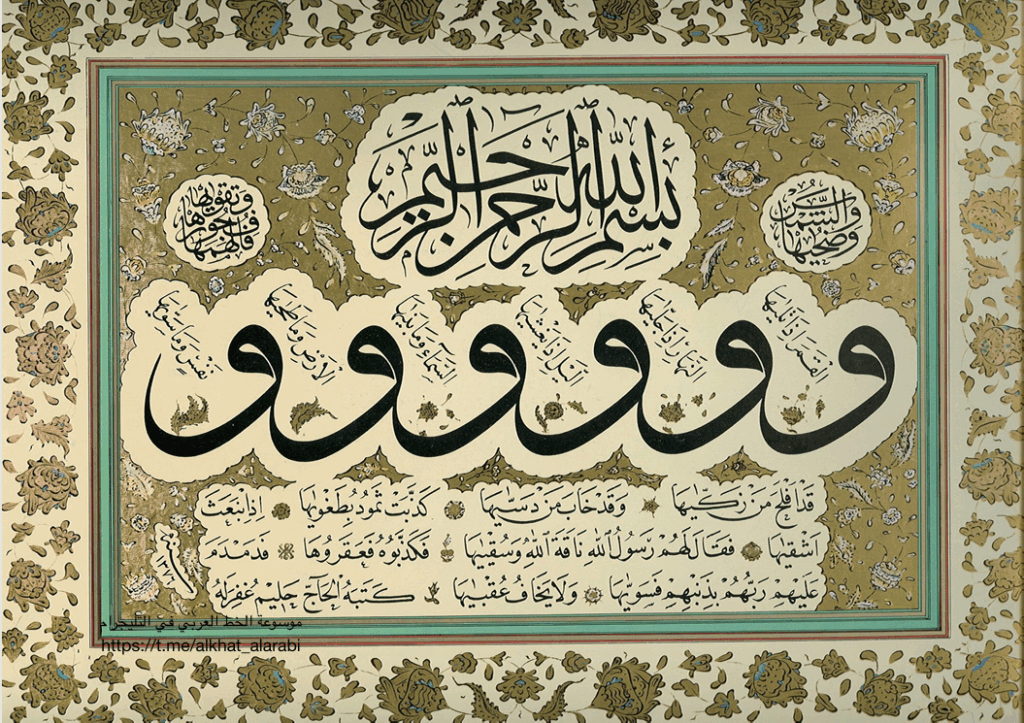 بسم الله الرحمن الرحيم
والشمس وضحيها
و القمر اذا تليها
و النهار اذا جليها
و الليل اذا يغشيها
و السماء وما بنيها
و الارض وما طحيها
و نفس وما سويها
فالهمها فجورها وتقويها
قد افلح من زكيها وقد خاب من دسيها كذبت ثمود بطغويها اذ انبعث
اشقيها فقال لهم رسول الله ناقة الله وسقيها فكذبوه فعقروها فدمدم
عليهم ربهم بذنبهم فسويها ولا يخاف عقبيها كتبه الحاج حليم غفر له
موسوعة الخط العربي في التليجرام
https://t.me/alkhat_alarabi